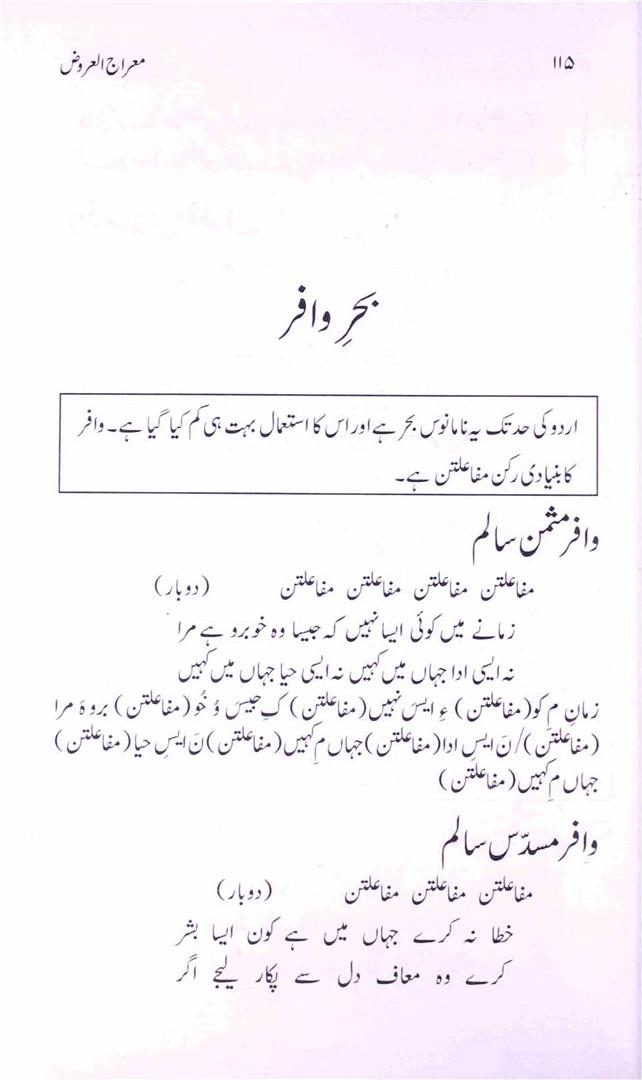 معراج العروض ۱۱۵
بحرِ وافر
اردو کی حد تک یہ نامانوس بحر ہے اور اس کا استعمال بہت ہی کم کیا گیا ہے۔ وافر
کا بنیادی رکن مفاعلتن ہے۔
وافر مثمن سالم
مفاعلتن مفاعلتن مفاعلتن مفاعلتن (دوبار)
زمانے میں کوئی ایسا نہیں کہ جیسا وہ خوبرو ہے مرا
نہ ایسی ادا جہاں میں کہیں نہ ایسی حیا جہاں میں کہیں
زمانِ م کو(مفاعلتن) ءِ ایس نہیں(مفاعلتن) کِ جیسَ وُ خُو(مفاعلتن) بروہَ مرا
(مفاعلتن)/نَ ایسِ ادا(مفاعلتن)جہاں مِ کہیں(مفاعلتن)نَ ایسِ حیا(مفاعلتن)
جہاں مِ کہیں(مفاعلتن)
وافر مسدّس سالم
مفاعلتن مفاعلتن مفاعلتن (دوبار)
خطا نہ کرے جہاں میں ہے کون ایسا بشر
کرے وہ معاف دل سے پکار لیجے اگر